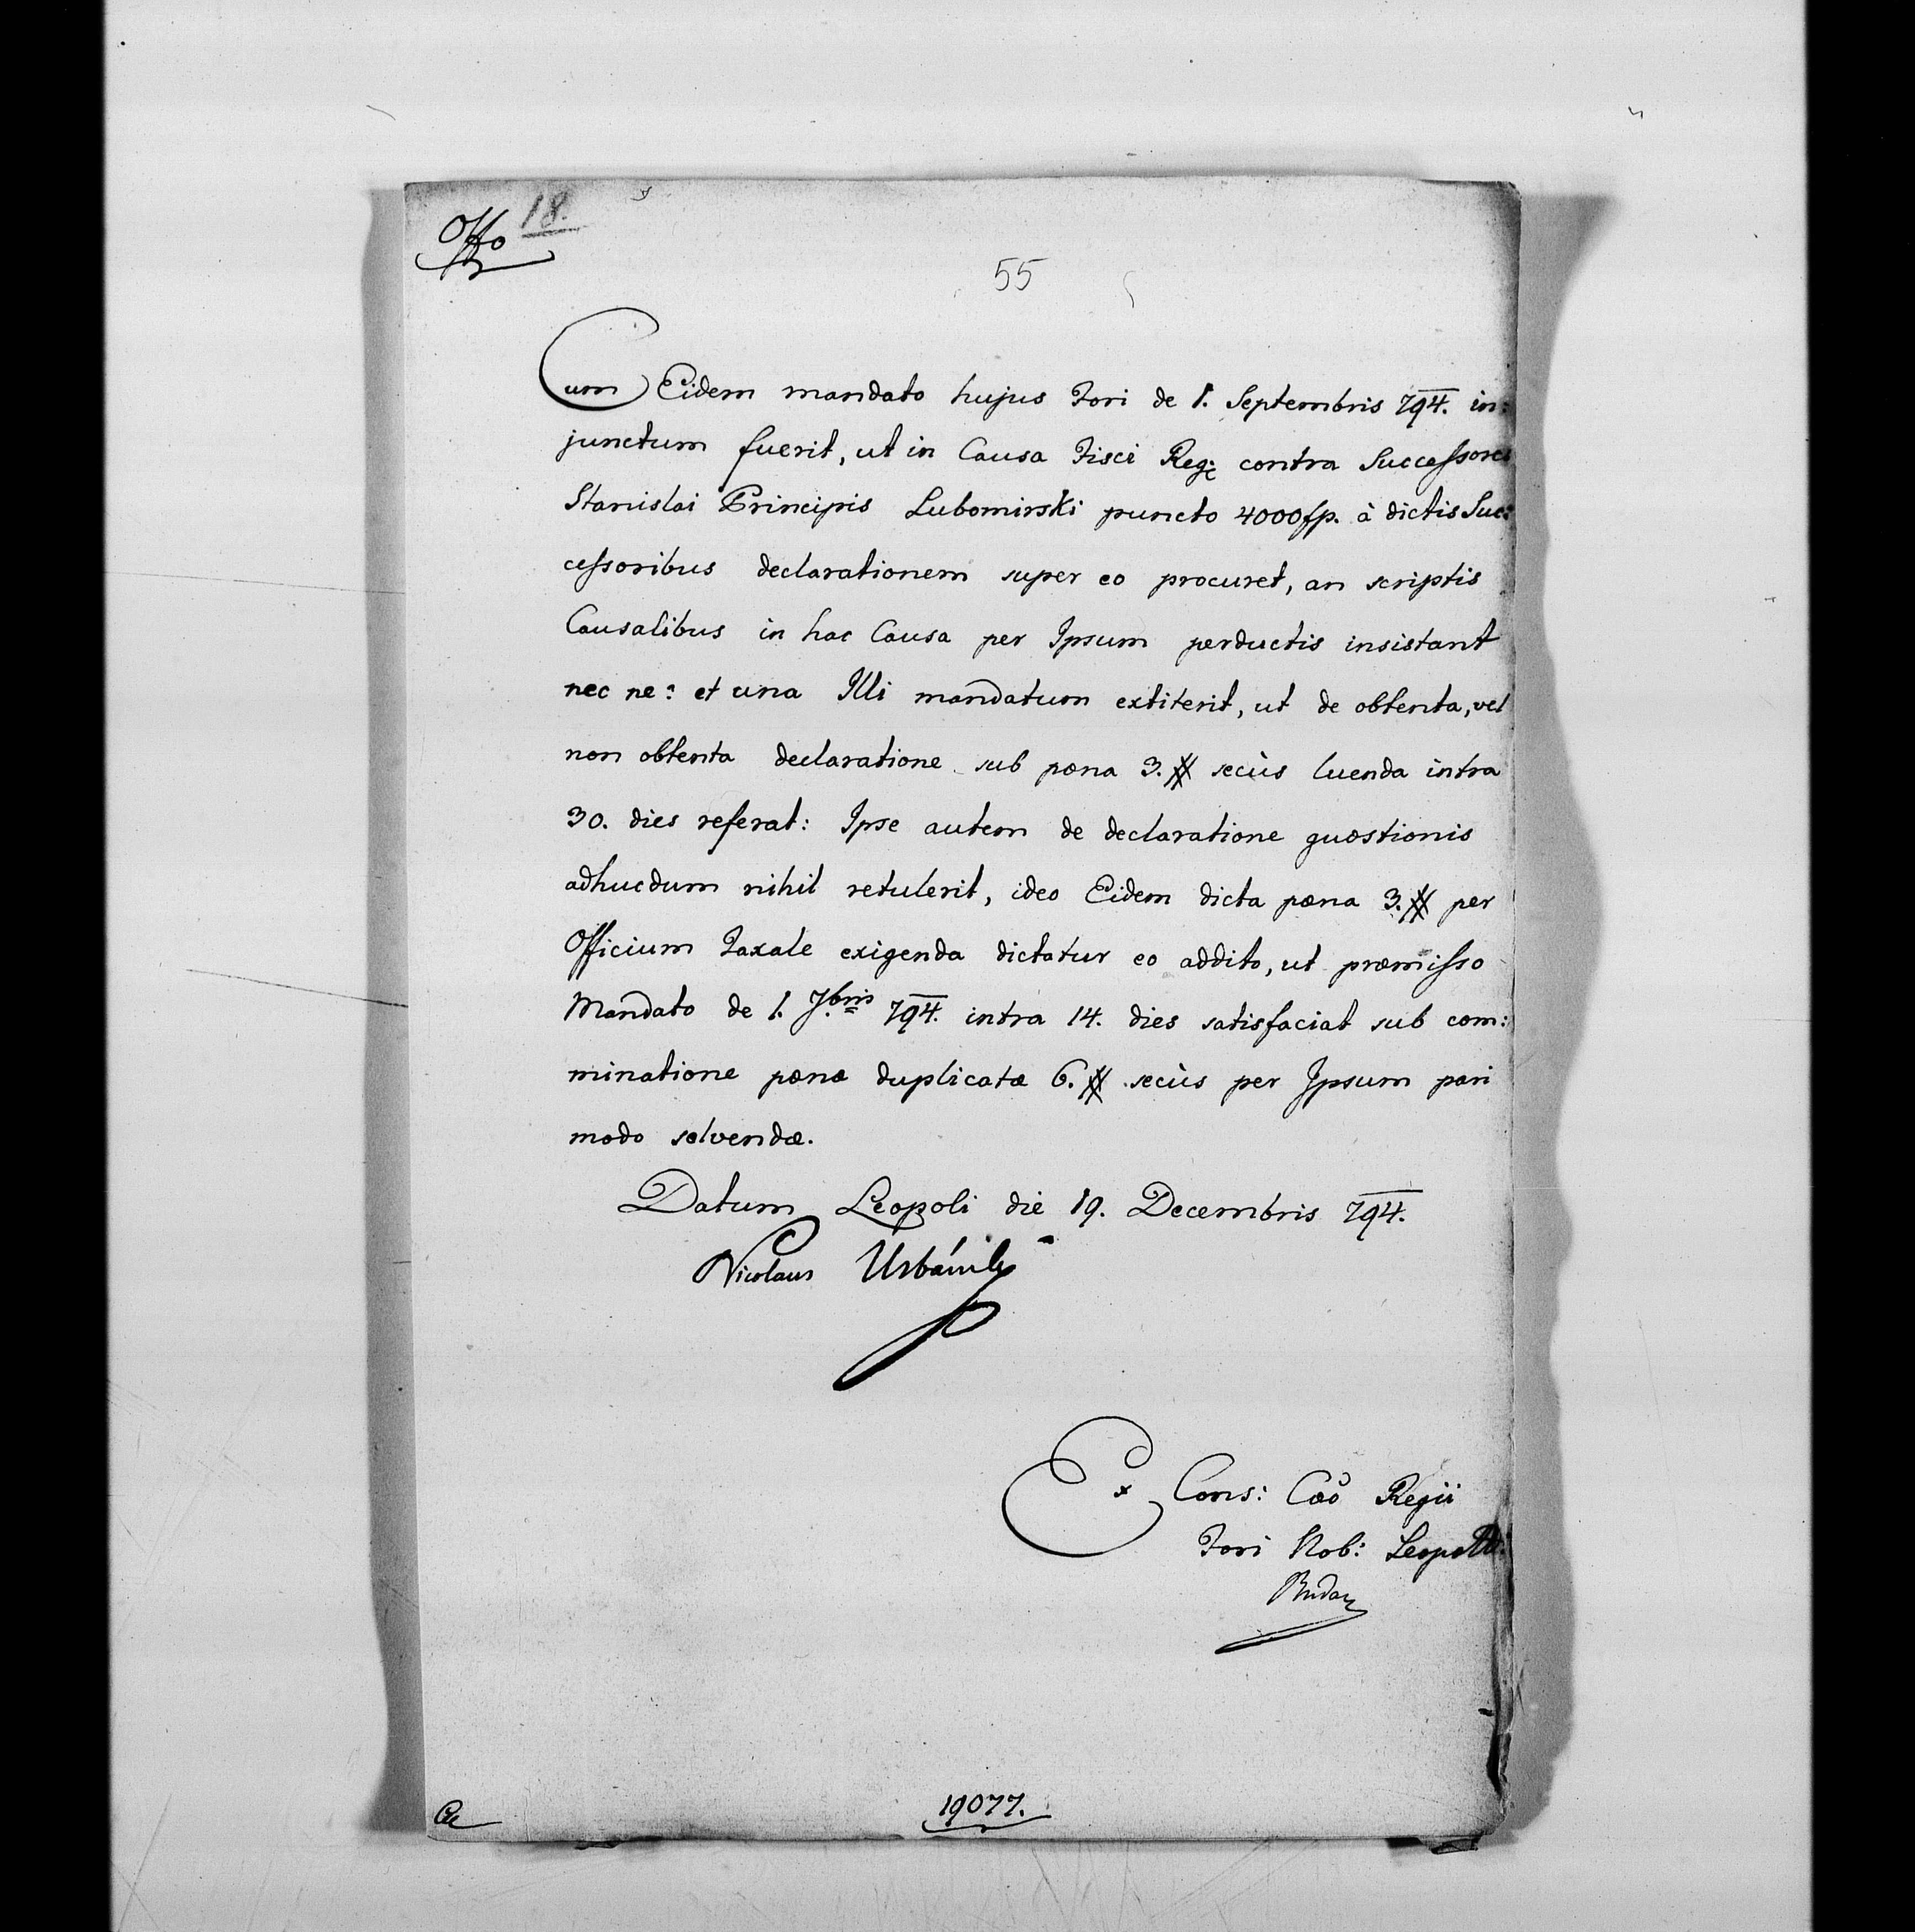 Offo 18.
55
Cum Eidem mandato hujus Fori de 1. Septembris 794. in:
junctum fuerit, ut in Causa Fisci Reg: contra Successores
Stanislai Principis Lubomirski puncto 4000 fp. à dictis Suc:
cessoribus declarationem super eo procuret, an scriptis
Causalibus in hac Causa per Ipsum perductis insistant
nec ne: et una Illi mandatum extiterit, ut de obtenta, vel
non obtenta declaratione sub pœna 3. # secùs luenda intra
30. dies referat: Ipse autem de declaratione quæstionis
adhucdum nihil retulerit, ideo Eidem dicta pœna 3. # per
Officium Taxale exigenda dictatur eo addito, ut præmisso
Mandato de 1. 7.bris 794. intra 14. dies satisfaciat sub com:
minatione pœnæ duplicatæ 6. # secùs per Ipsum pari
modo solvendæ.
Datum Leopoli die 19. Decembris 794.
Nicolaus
Ex Cons: Cæo Regii
Fori Nob: Leopol:
19077.